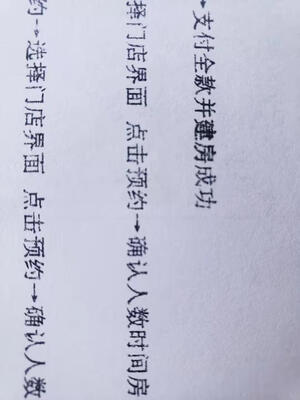 →支付全款并建房成功
择门店界面 点击预约→确认人数时间房
约→选择门店界面 点击预约→确认人数